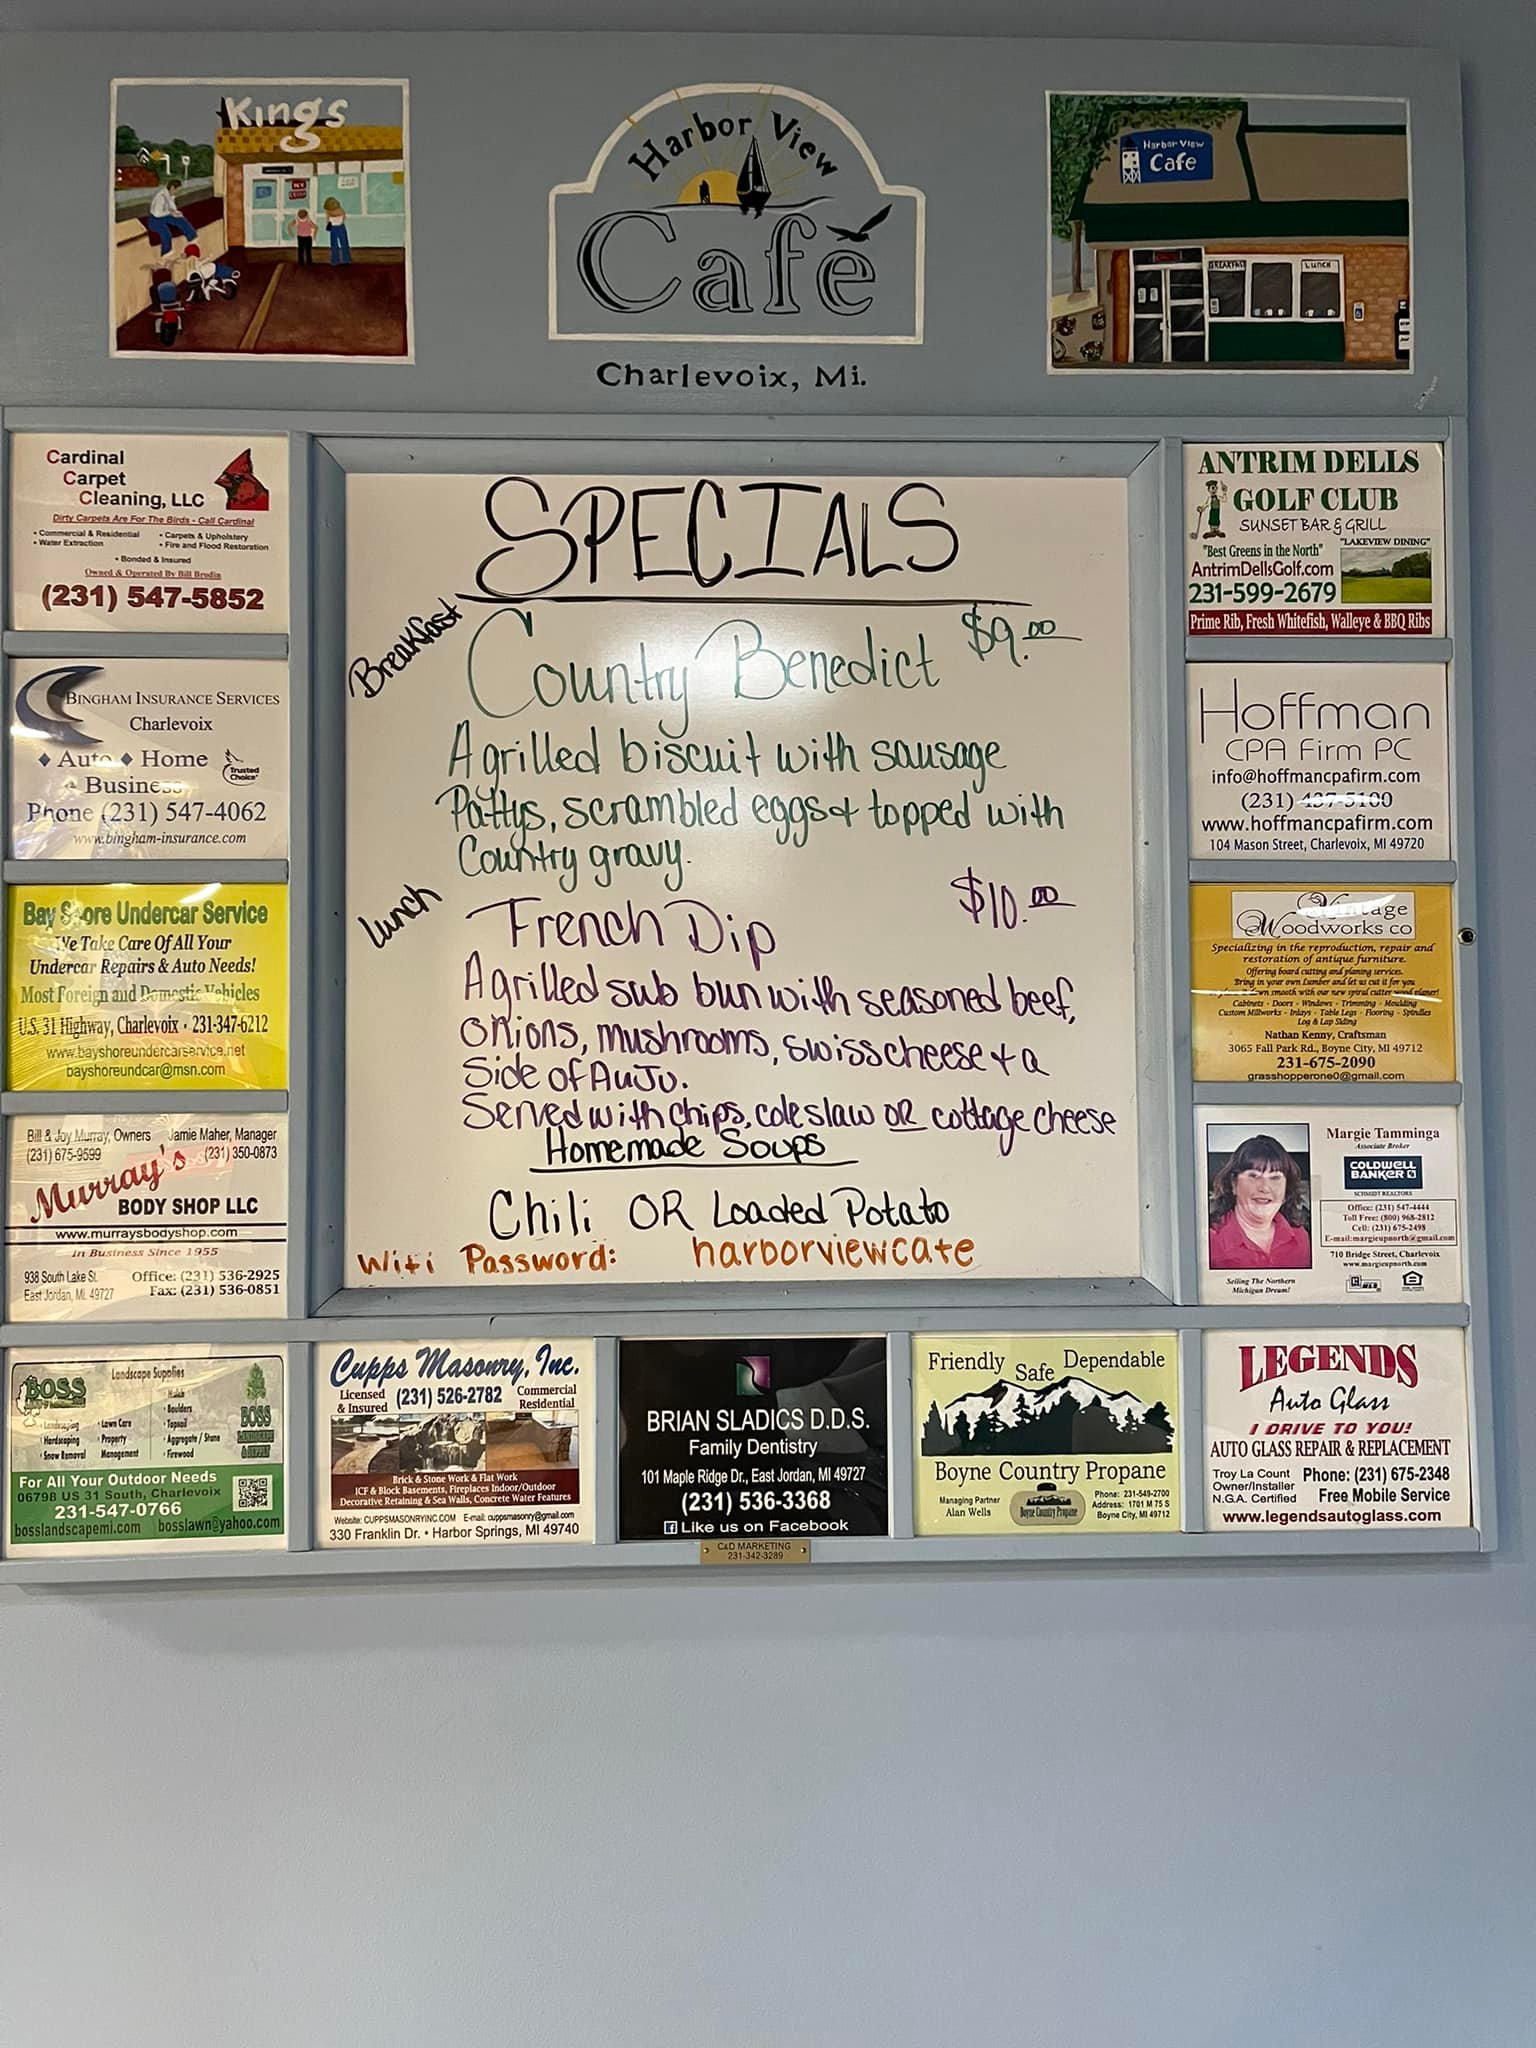 Kings
Harbor View
Café
Charlevoix, Mi.
Harbor View
Cafe
BREAKFAST
LUNCH
Cardinal
Carpet
Cleaning, LLC
Dirty Carpets Are For The Birds - Call Cardinal
• Commercial & Residential • Carpets & Upholstery
• Water Extraction • Fire and Flood Restoration
• Bonded & Insured
Owned & Operated By Bill Brodin
(231) 547-5852
BINGHAM INSURANCE SERVICES
Charlevoix
♦ Auto ♦ Home
♦ Business
Trusted
Choice
Phone (231) 547-4062
www.bingham-insurance.com
Bay Shore Undercar Service
We Take Care Of All Your
Undercar Repairs & Auto Needs!
Most Foreign and Domestic Vehicles
U.S. 31 Highway, Charlevoix • 231-347-6212
www.bayshoreundercarservice.net
bayshoreundcar@msn.com
Bill & Joy Murray, Owners Jamie Maher, Manager
(231) 675-9599 (231) 350-0873
Murray's
BODY SHOP LLC
www.murraysbodyshop.com
In Business Since 1955
938 South Lake St. Office: (231) 536-2925
East Jordan, Mi. 49727 Fax: (231) 536-0851
SPECIALS
Breakfast
Country Benedict $9.00
A grilled biscuit with sausage
Pattys, scrambled eggs + topped with
Country gravy.
Lunch
French Dip $10.00
A grilled sub bun with seasoned beef,
onions, mushrooms, swiss cheese + a
side of AuJu.
Served with chips, coleslaw OR cottage cheese
Homemade Soups
Chili OR Loaded Potato
Wifi Password: harborviewcafe
ANTRIM DELLS
GOLF CLUB
SUNSET BAR & GRILL
"Best Greens in the North" "LAKEVIEW DINING"
AntrimDellsGolf.com
231-599-2679
Prime Rib, Fresh Whitefish, Walleye & BBQ Ribs
Hoffman
CPA Firm PC
info@hoffmancpafirm.com
(231) 437-5100
www.hoffmancpafirm.com
104 Mason Street, Charlevoix, MI 49720
Vintage
Woodworks co
Specializing in the reproduction, repair and
restoration of antique furniture.
Offering board cutting and planing services.
Bring in your own Lumber and let us cut it for you
down smooth with our new spiral cutter wood planer!
Cabinets - Doors - Windows - Trimming - Moulding
Custom Millworks - Inlays - Table Legs - Flooring - Spindles
Log & Lap Siding
Nathan Kenny, Craftsman
3065 Fall Park Rd., Boyne City, MI 49712
231-675-2090
grasshopperone0@gmail.com
Margie Tamminga
Associate Broker
COLDWELL
BANKER
SCHMIDT REALTORS
Office: (231) 547-4444
Toll Free: (800) 968-2812
Cell: (231) 675-2498
E-mail:margieupnorth@gmail.com
710 Bridge Street, Charlevoix
www.margieupnorth.com
Selling The Northern
Michigan Dream!
BOSS
Landscape Supplies
• Landscaping
• Hardscaping
• Snow Removal
• Lawn Care
• Property
Management
• Mulch
• Boulders
• Topsoil
• Aggregate / Stone
• Firewood
BOSS
LANDSCAPE
& SUPPLY
For All Your Outdoor Needs
06798 US 31 South, Charlevoix
231-547-0766
bosslandscapemi.com bosslawn@yahoo.com
Cupps Masonry, Inc.
Licensed
& Insured
(231) 526-2782
Commercial
Residential
Brick & Stone Work & Flat Work
ICF & Block Basements, Fireplaces Indoor/Outdoor
Decorative Retaining & Sea Walls, Concrete Water Features
Website: CUPPSMASONRYINC.COM E-mail: cuppsmasonry@gmail.com
330 Franklin Dr. • Harbor Springs, MI 49740
BRIAN SLADICS D.D.S.
Family Dentistry
101 Maple Ridge Dr., East Jordan, MI 49727
(231) 536-3368
Like us on Facebook
Friendly Safe Dependable
Boyne Country Propane
Managing Partner
Alan Wells
Boyne Country Propane
Phone: 231-549-2700
Address: 1701 M 75 S
Boyne City, MI 49712
LEGENDS
Auto Glass
I DRIVE TO YOU!
AUTO GLASS REPAIR & REPLACEMENT
Troy La Count
Owner/Installer
N.G.A. Certified
Phone: (231) 675-2348
Free Mobile Service
www.legendsautoglass.com
C&D MARKETING
231-342-3289